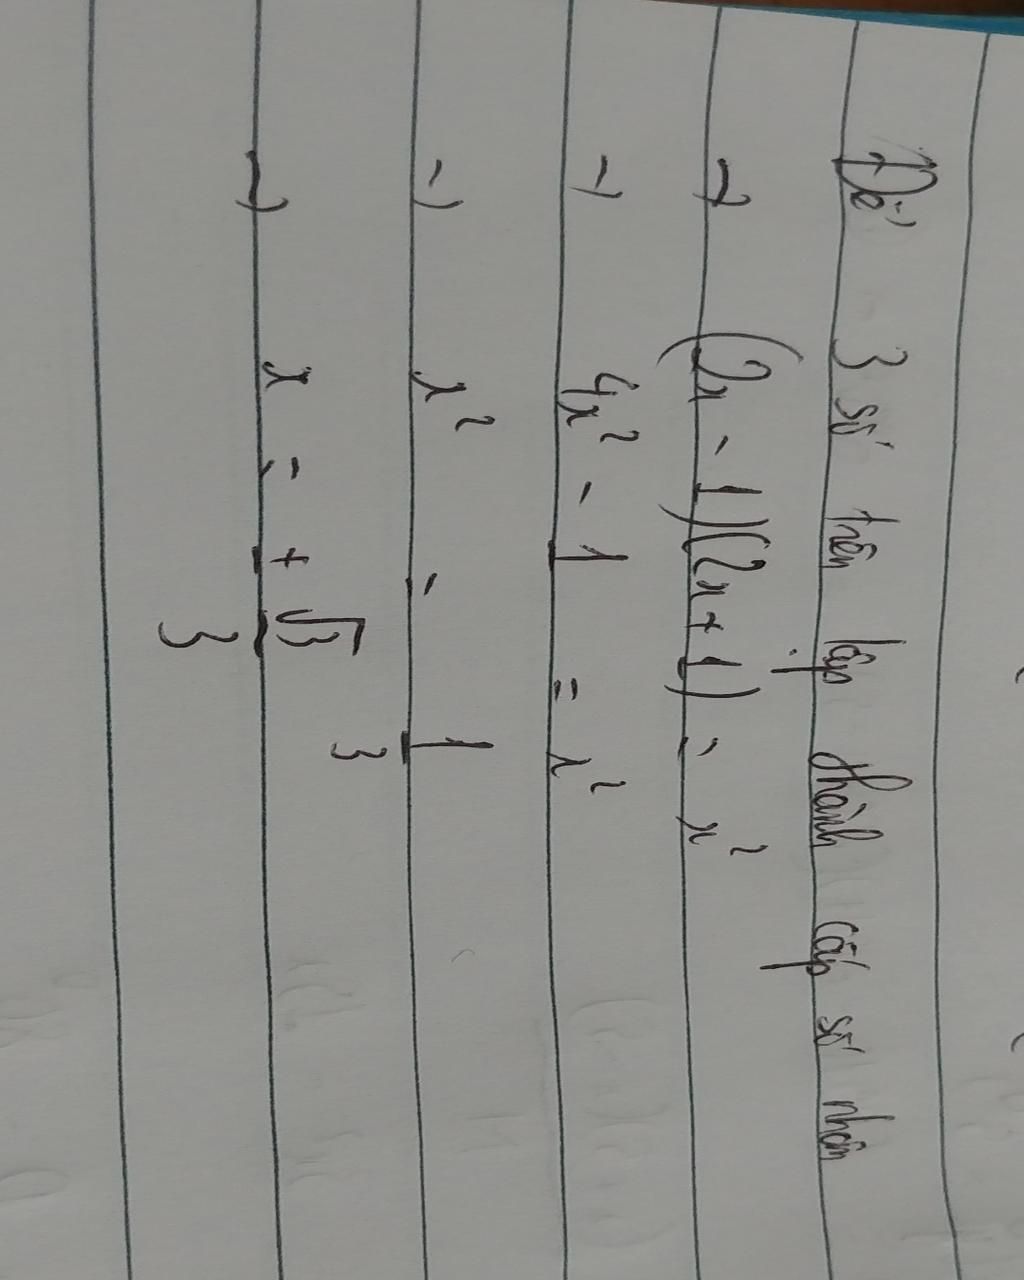 Để 3 số trên lập thành cấp số nhân
→ (2x - 1)(2x + 1) = x²
→ 4x² - 1 = x²
→ x² = 1/3
→ x = ± √3/3